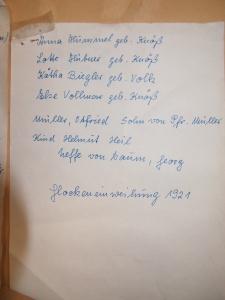 Anna Hummel geb. Knöß
Lotte Hübner geb. Knöß
Kätha Ziegler geb. Volk
Else Vollmar geb. Knöß
Müller, Ottfried Sohn von Pfr. Müller
Kind Helmut Heil
Neffe von Daum, Georg
Glockeneinweihung 1921